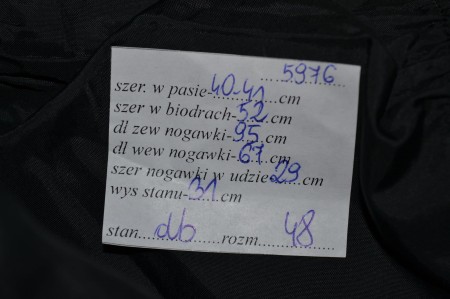 ..................5976
szer. w pasie-40-41......cm
szer w biodrach-52...cm
dl zew nogawki-95...cm
dl wew nogawki-67.cm
szer nogawki w udzie 29....cm
wys stanu-31.cm
stan....db.........rozm....48......